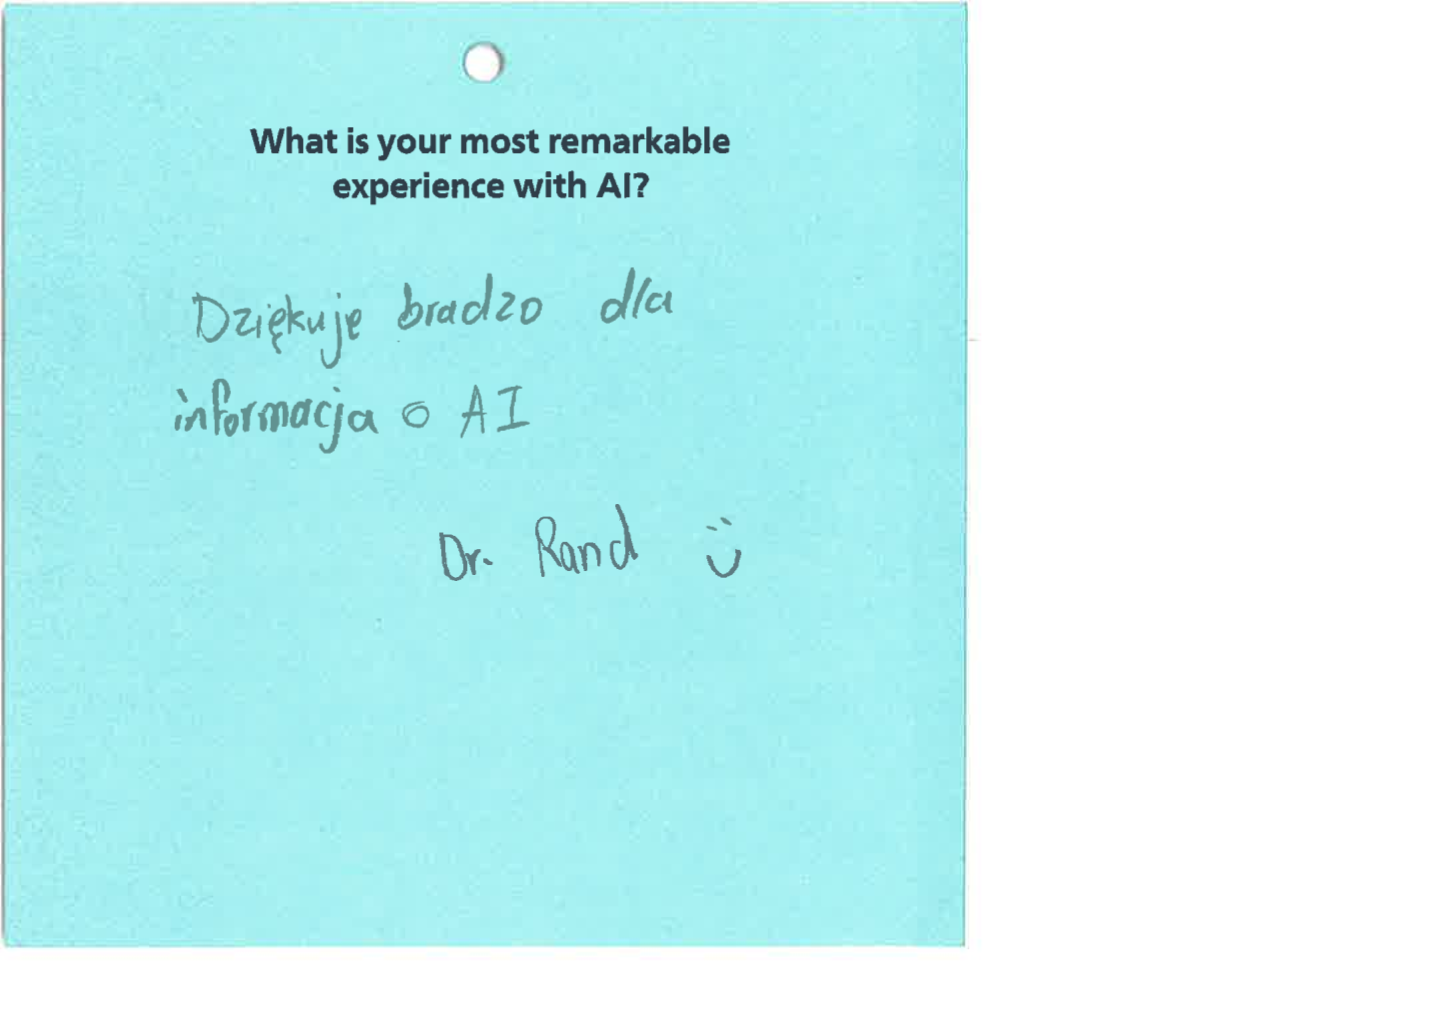 What is your most remarkable
experience with AI?
Dziękuję bradzo dla
informacja o AI
Dr. Rand ü